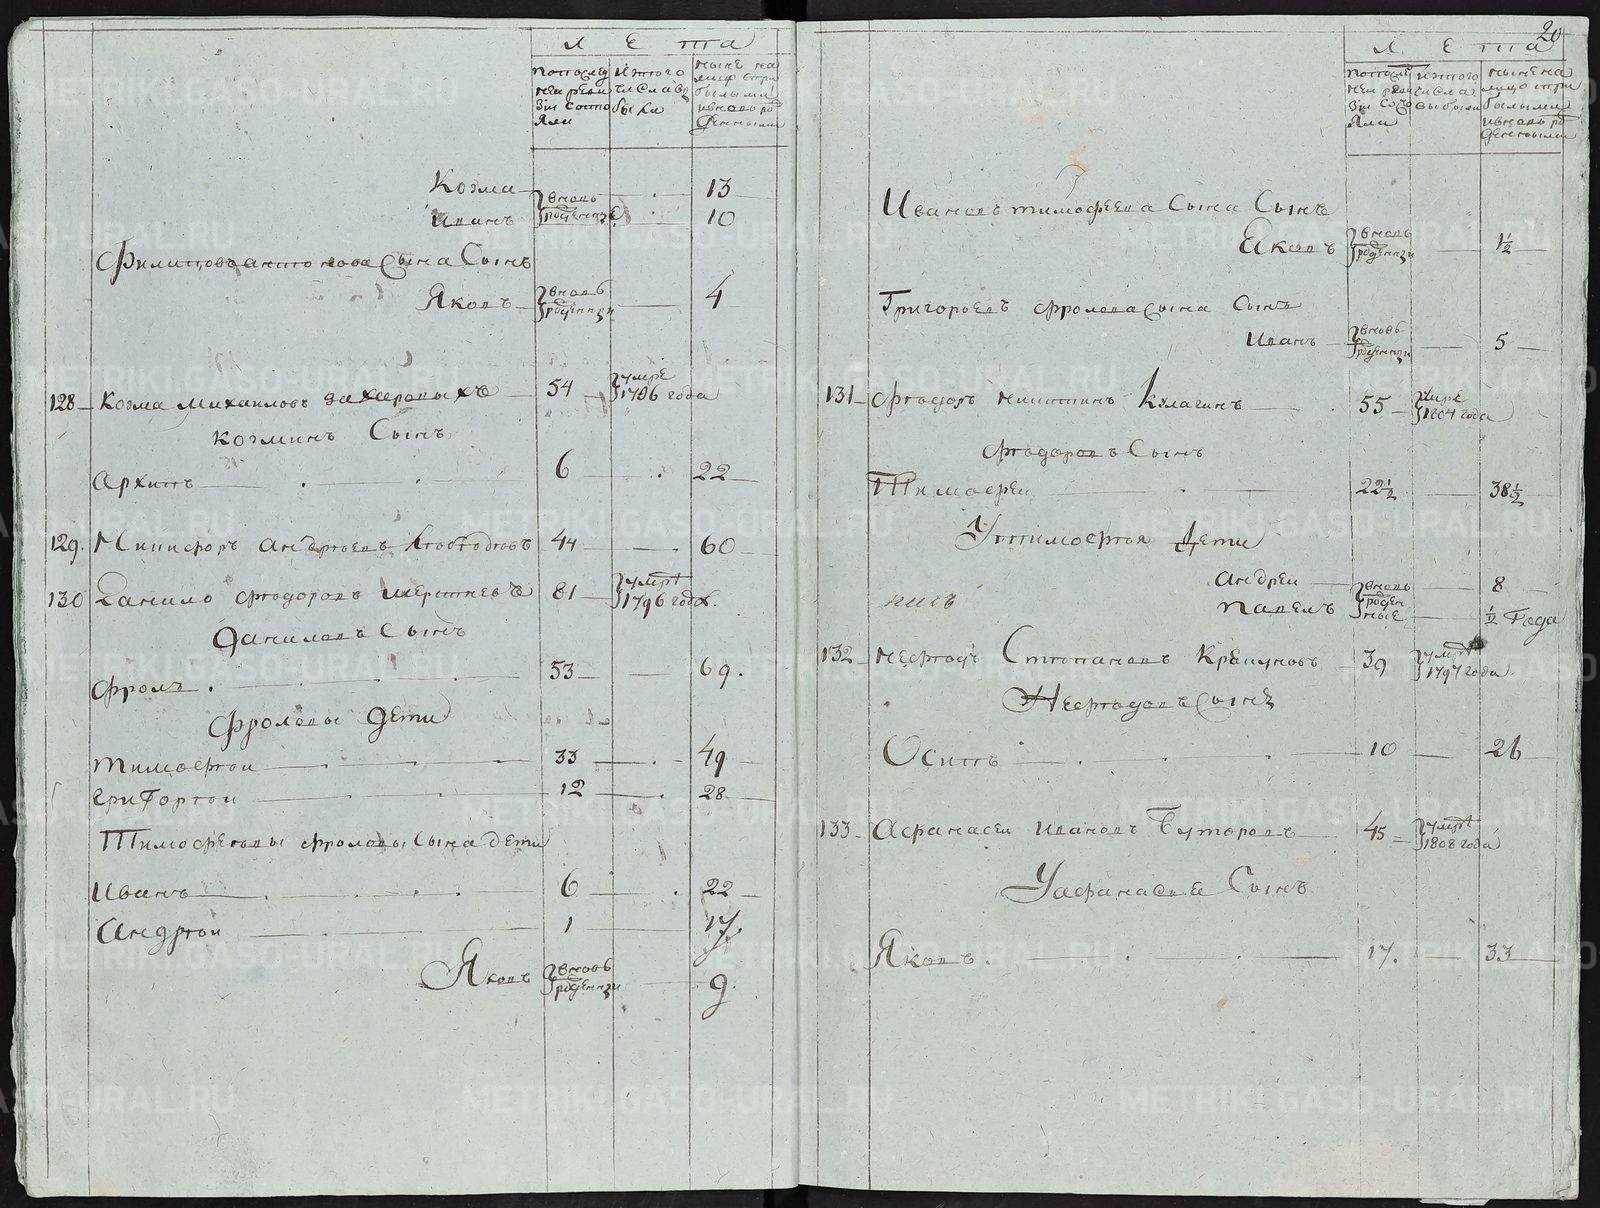 Лета
последней ревизии состояли
и того числа выбыли
ныне на лицо с прибылыми и вновь рожденными
Козма 13
Иванъ вновь рожденные 10
Филиповъ антонова Сына Сынъ
Яковъ вновь рожденный 4
128 Козма Михаиловъ захаровыхъ 54 умре 1796 года
Козминъ Сынъ
Архипъ 6 22
129. Никифоръ андреевъ 44 60
130 Данило Феодоровъ шерстневъ 81 умре 1796 года.
Даниловъ Сынъ
Фролъ 53 69.
Фроловы Дети
тимофеи 33 49
григореи 12 28
Тимофеевы фроловы Сына дети
Иванъ 6 22
Андреи 1 17.
Яковъ вновь рожденныи 9.
20
Лета
последней ревизии состояли
и того числа выбыли
ныне на лицо с прибылыми и вновь рожденными
Ивановъ тимофеева Сына Сынъ
Яковъ вновь рожденныи 1½
Григорьевъ фролова Сына Сынъ
Иванъ вновь рожденныи 5
131 Феодоръ никитинъ Кулагинъ 55 умре 1804 года
Феодоровъ Сынъ
Тимофеи 22½ 38½
У тимофея Дети
андреи 8
Павелъ вновь рожденные ½ года
132 нефедъ Степановъ Крешуновъ 39 умре 1797 года
Нефедовъ Сынъ
Осипъ 10 26
133 Афанасеи Ивановъ Буторовъ 45 умре 1808 года
У афанасиа Сынъ
Яковъ. 17. 33